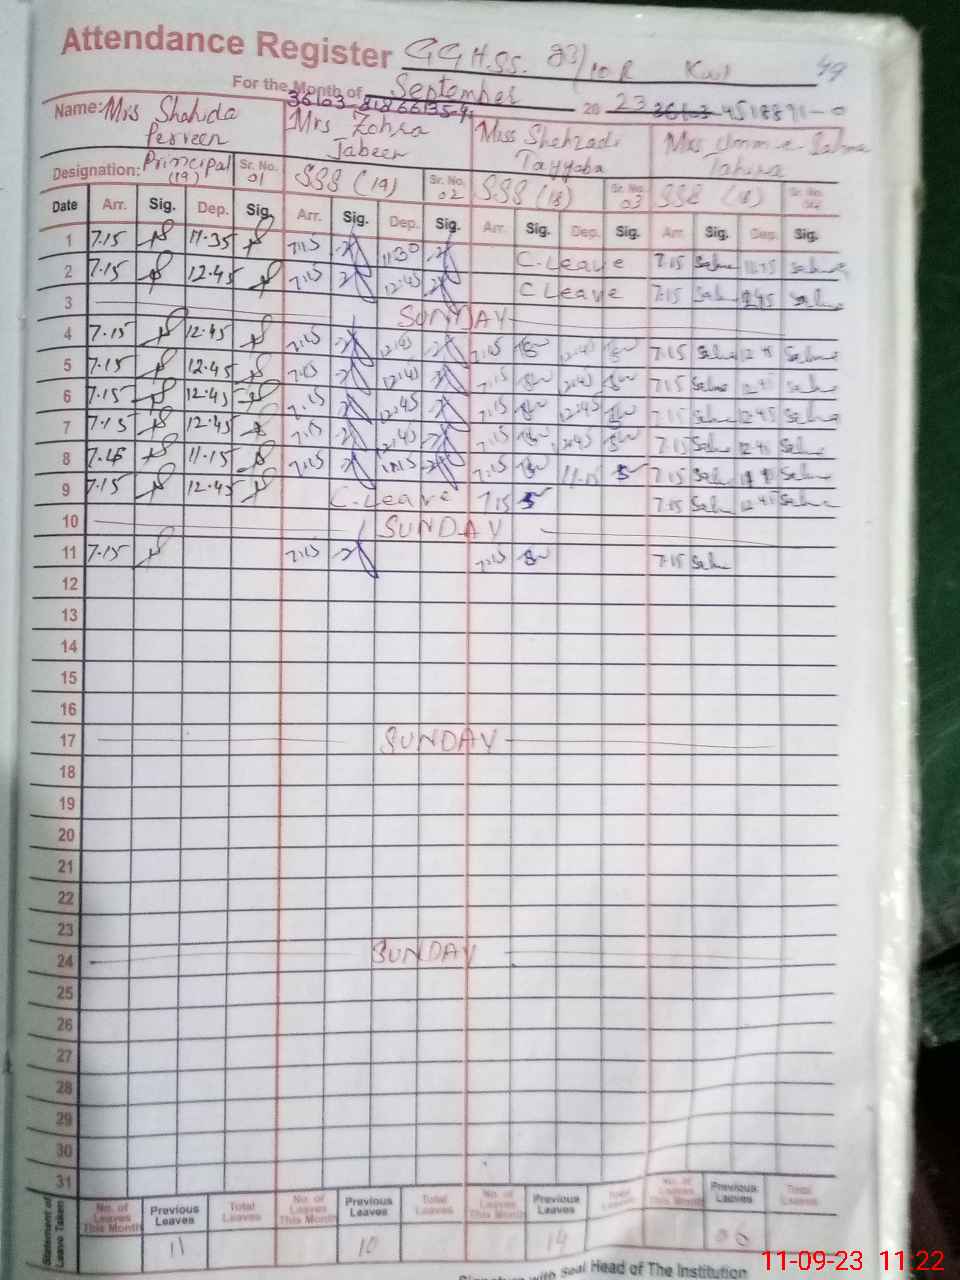 Attendance Register GGH.SS. 93/10R Kwl 49
For the Month of September 2023
Name: Mrs Shahida Perveen Mrs Zohra Jabeen Miss Shehzadi Tayyaba Mrs Umm-e-Salma Tahira
Designation: Principal (19) Sr. No. 01 SSS (19) Sr. No. 02 SSS (18) Sr. No. 03 SSE (18) Sr. No.
Date Arr. Sig. Dep. Sig. Arr. Sig. Dep. Sig. Arr. Sig. Dep. Sig. Arr. Sig. Dep. Sig.
1 7.15 11.35 7.15 11.30 C.Leave 7.15 Salma
2 7.15 12.45 7.15 12.45 C Leave 7.15 Sal 12.45 Salma
3 SUNDAY
4 7.15 12.45 7.15 12.45 7.15 12.45 7.15 Salma 12.45 Salma
5 7.15 12.45 7.15 12.45 7.15 12.45 7.15 Salma 12.45 Salma
6 7.15 12.45 7.15 12.45 7.15 12.45 7.15 Salma 12.45 Salma
7 7.15 12.45 7.15 12.45 7.15 12.45 7.15 Salma 12.45 Salma
8 7.15 11.15 7.15 11.15 7.15 11.15 7.15 Salma Salma
9 7.15 12.45 C.Leave 7.15 7.15 Salma 12.45 Salma
10 SUNDAY
11 7.15 7.15 7.15 7.15 Salma
12
13
14
15
16
17 SUNDAY
18
19
20
21
22
23
24 SUNDAY
25
26
27
28
29
30
31
Statement of Leave Taken No. of Leaves This Month Previous Leaves Total Leaves No. of Leaves This Month Previous Leaves Total Leaves No. of Leaves This Month Previous Leaves Total Leaves No. of Leaves This Month Previous Leaves Total Leaves
11 10 14 06
Signature with Seal Head of The Institution
11-09-23 11:22